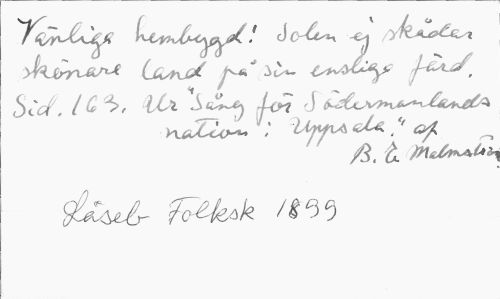 Vänliga hembygd! Solen ej skådar
skönare land på sin ensliga färd.
Sid. 163. Ur "Sång för Södermanlands
nation i Uppsala." af
B. E. Malmström.
Läseb Folksk 1899